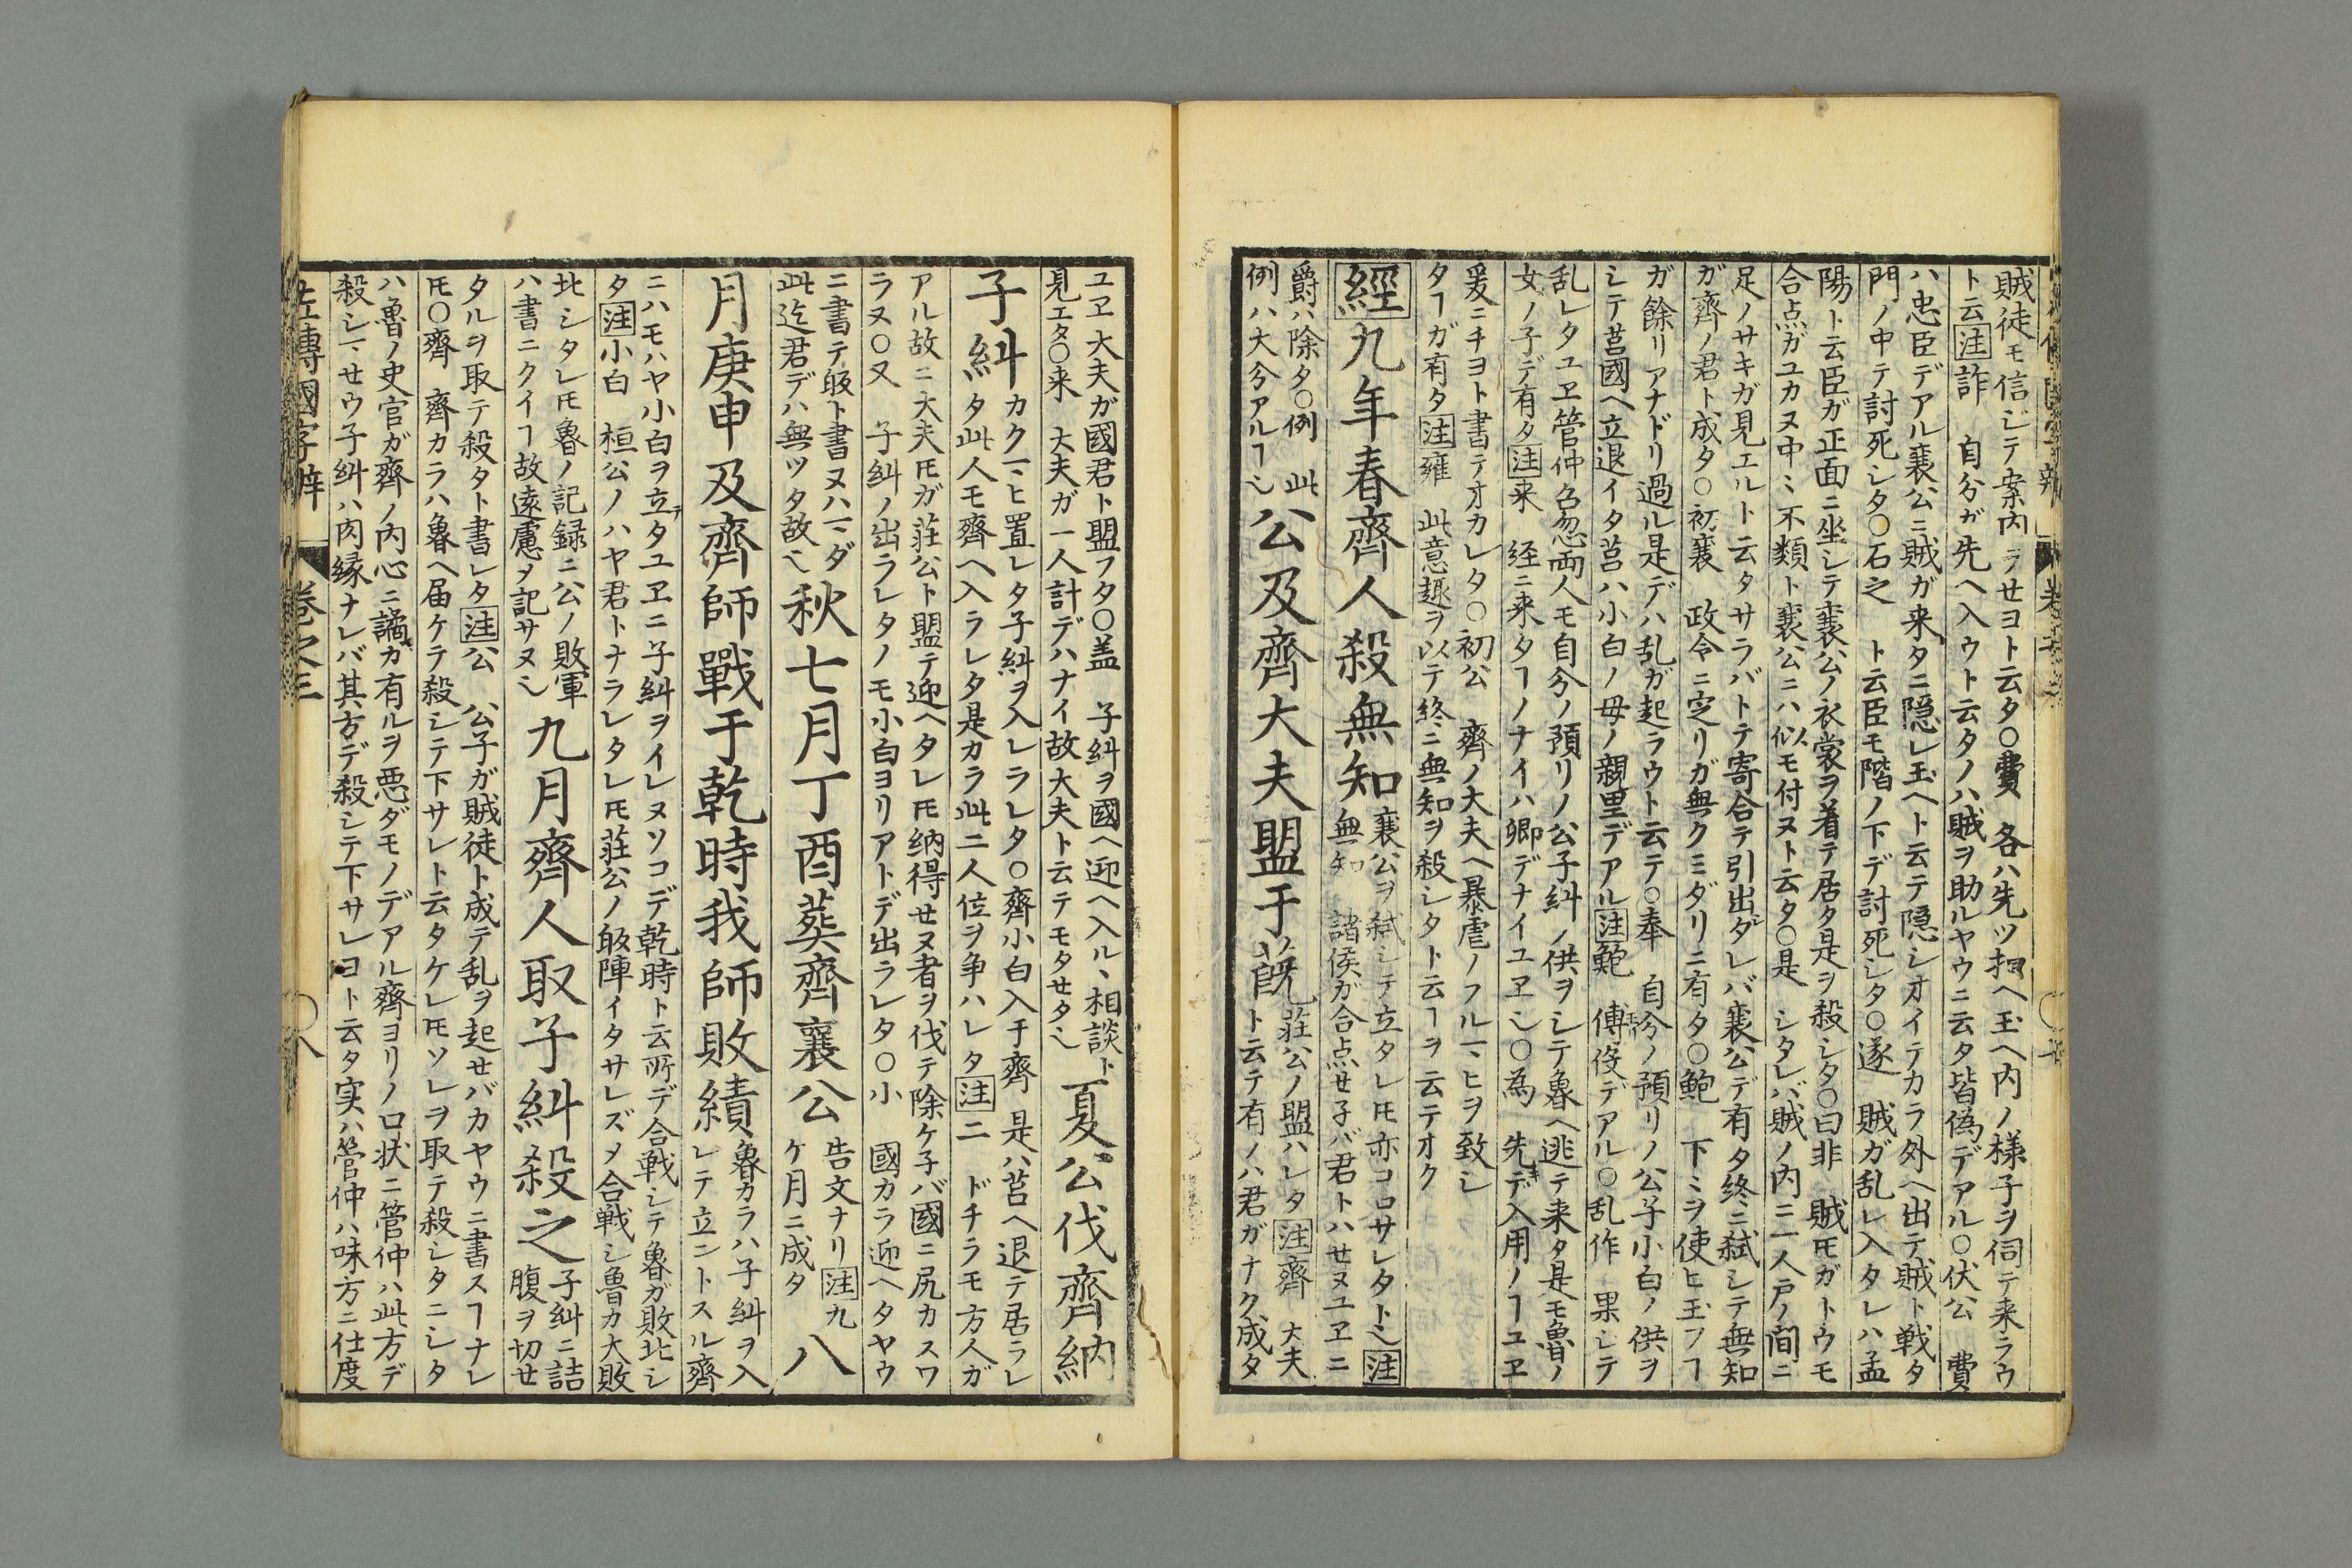 賊徒モ信ジテ案内ラセヨト云タ〇費　各ハ先ツ扣ヘ玉ヘ内ノ様子ヲ伺テ来ラウ
ト云注詐　自分ガ先ヘ入ウト云タノハ賊ヲ助ルヤウニ云タ皆偽デアル〇伏公　費
ハ忠臣デアル襄公ニ賊ガ来タニ隠レ玉ヘト云テ隠シオイテカラ外ヘ出テ賊ト戦タ
門ノ中テ討死シタ〇石之　ト云臣モ階ノ下デ討死シタ〇遂　賊ガ乱レ入タレハ孟
陽ト云臣ガ正面ニ坐シテ襄公ノ衣裳ヲ着テ居タ是ヲ殺シタ〇曰非　賊𪜈ガトウモ
合点ガユカヌ中〻不類ト襄公ニハ似モ付ヌト云タ〇是　シタレバ賊ノ内ニ一人戸ノ間ニ
足ノサキガ見エルト云タサラバトテ寄合テ引出ダレバ襄公デ有タ終ニ弑シテ無知
ガ齊ノ君ト成タ〇初襄　政令ニ定リガ無クミダリニ有タ〇鮑　下〻ヲ使ヒ玉フヿ
ガ餘リアナドリ過ル是デハ乱ガ起ラウト云テ〇奉　自分ノ預リノ公子小白ノ供ヲ
シテ莒國ヘ立退イタ莒ハ小白ノ母ノ親里デアル注鮑　傅役デアル〇乱作　果シテ
乱レタユヱ管仲召忽両人モ自分ノ預リノ公子糾ノ供ヲシテ魯ヘ逃テ来タ是モ魯ノ
女ノ子デ有タ注来　経ニ来タヿノナイハ卿デナイユヱ也〇為　先デ入用ノヿユヱ
爰ニチヨト書テオカレタ〇初公　齊ノ大夫ヘ暴虐ノフルマヒヲ致シ
タヿガ有タ注雍　此意趣ヲ以テ終ニ無知ヲ殺シタト云ヿヲ云テオク
經九年春齊人殺無知
襄公ヲ弑シテ立タレ𪜈亦コロサレタト也注
無知　諸侯ガ合点セ子バ君トハセヌユヱニ
爵ハ除タ〇例　此
例ハ大分アルヿ也
公及齊大夫盟于蔇
荘公ノ盟ハレタ注齊　大夫
ト云テ有ノハ君ガナク成タ
ユヱ大夫ガ國君ト盟フタ〇盖　子糾ヲ國ヘ迎ヘ入ルヽ相談ト
見エタ〇来　大夫ガ一人計デハナイ故大夫ト云テモタセタ也
夏公伐齊納
子糾
カクマヒ置レタ子糾ヲ入レラレタ〇齊小白入于齊　是ハ莒ヘ退テ居ラレ
タ此人モ齊ヘ入ラレタ是カラ此二人位ヲ争ハレタ注二　ドチラモ方人ガ
アル故ニ大夫𪜈ガ荘公ト盟テ迎ヘタレ𪜈納得セヌ者ヲ伐テ除ケ子バ國ニ尻カスワ
ラヌ〇又　子糾ノ出ラレタノモ小白ヨリアトデ出ラレタ〇小　國カラ迎ヘタヤウ
ニ書テ皈ト書ヌハマダ
此迄君デハ無ツタ故也
秋七月丁酉葬齊襄公
告文ナリ注九
ケ月ニ成タ
八
月庚申及齊師戰于乾時我師敗績
魯カラハ子糾ヲ入
レテ立ントスル齊
ニハモハヤ小白ヲ立テタユヱニ子糾ヲイレヌソコデ乾時ト云所デ合戦シテ魯ガ敗北シ
タ注小白　桓公ノハヤ君トナラレタレ𪜈荘公ノ皈陣イタサレズメ合戦シ魯カ大敗
北シタレ𪜈魯ノ記録ニ公ノ敗軍
ハ書ニクイヿ故遠慮ヲ記サヌ也
九月齊人取子糾殺之
子糾ニ詰
腹ヲ切セ
タルヲ取テ殺タト書レタ注公　公子ガ賊徒ト成テ乱ヲ起セバカヤウニ書スヿナレ
𪜈〇齊　齊カラハ魯ヘ届ケテ殺シテ下サレト云タケレ𪜈ソレヲ取テ殺シタニシタ
ハ魯ノ史官ガ齊ノ内心ニ譎カ有ルヲ悪ダモノデアル齊ヨリノ口状ニ管仲ハ此方デ
殺シマセウ子糾ハ肉縁ナレバ其方デ殺シテ下サレヨト云タ実ハ管仲ハ味方ニ仕度
左傳國字辨　巻之三　〇八